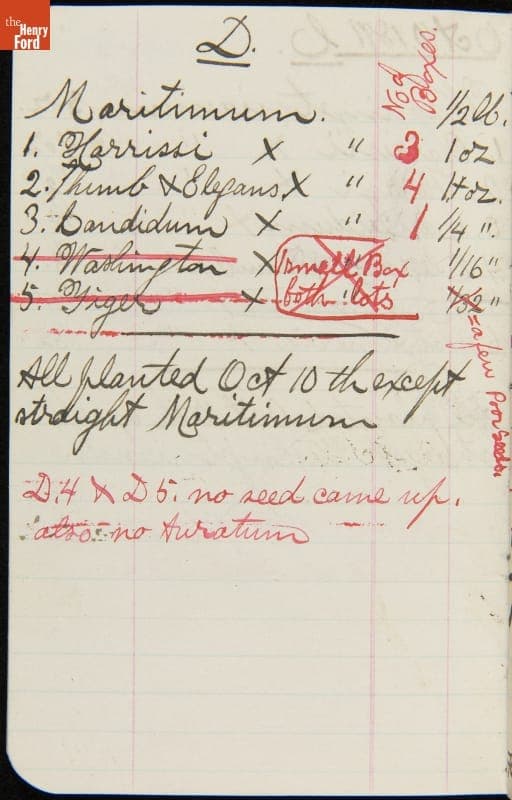 the
Henry
Ford
D.
No of
Boxes.
Maritimum. 1/2 lb.
1. Harrissi X " 3 1 oz
2. Thumb & Elegans. X " 4 1 oz.
3. Candidum X " 1 1/4 ".
4. Washington X 1 small Box 1/16"
5. Tiger X both lots 1/32"
= a few Poor Seeds
All planted Oct 10th except
straight Maritimum
D.4 & D5. no seed came up.
also no Auratum